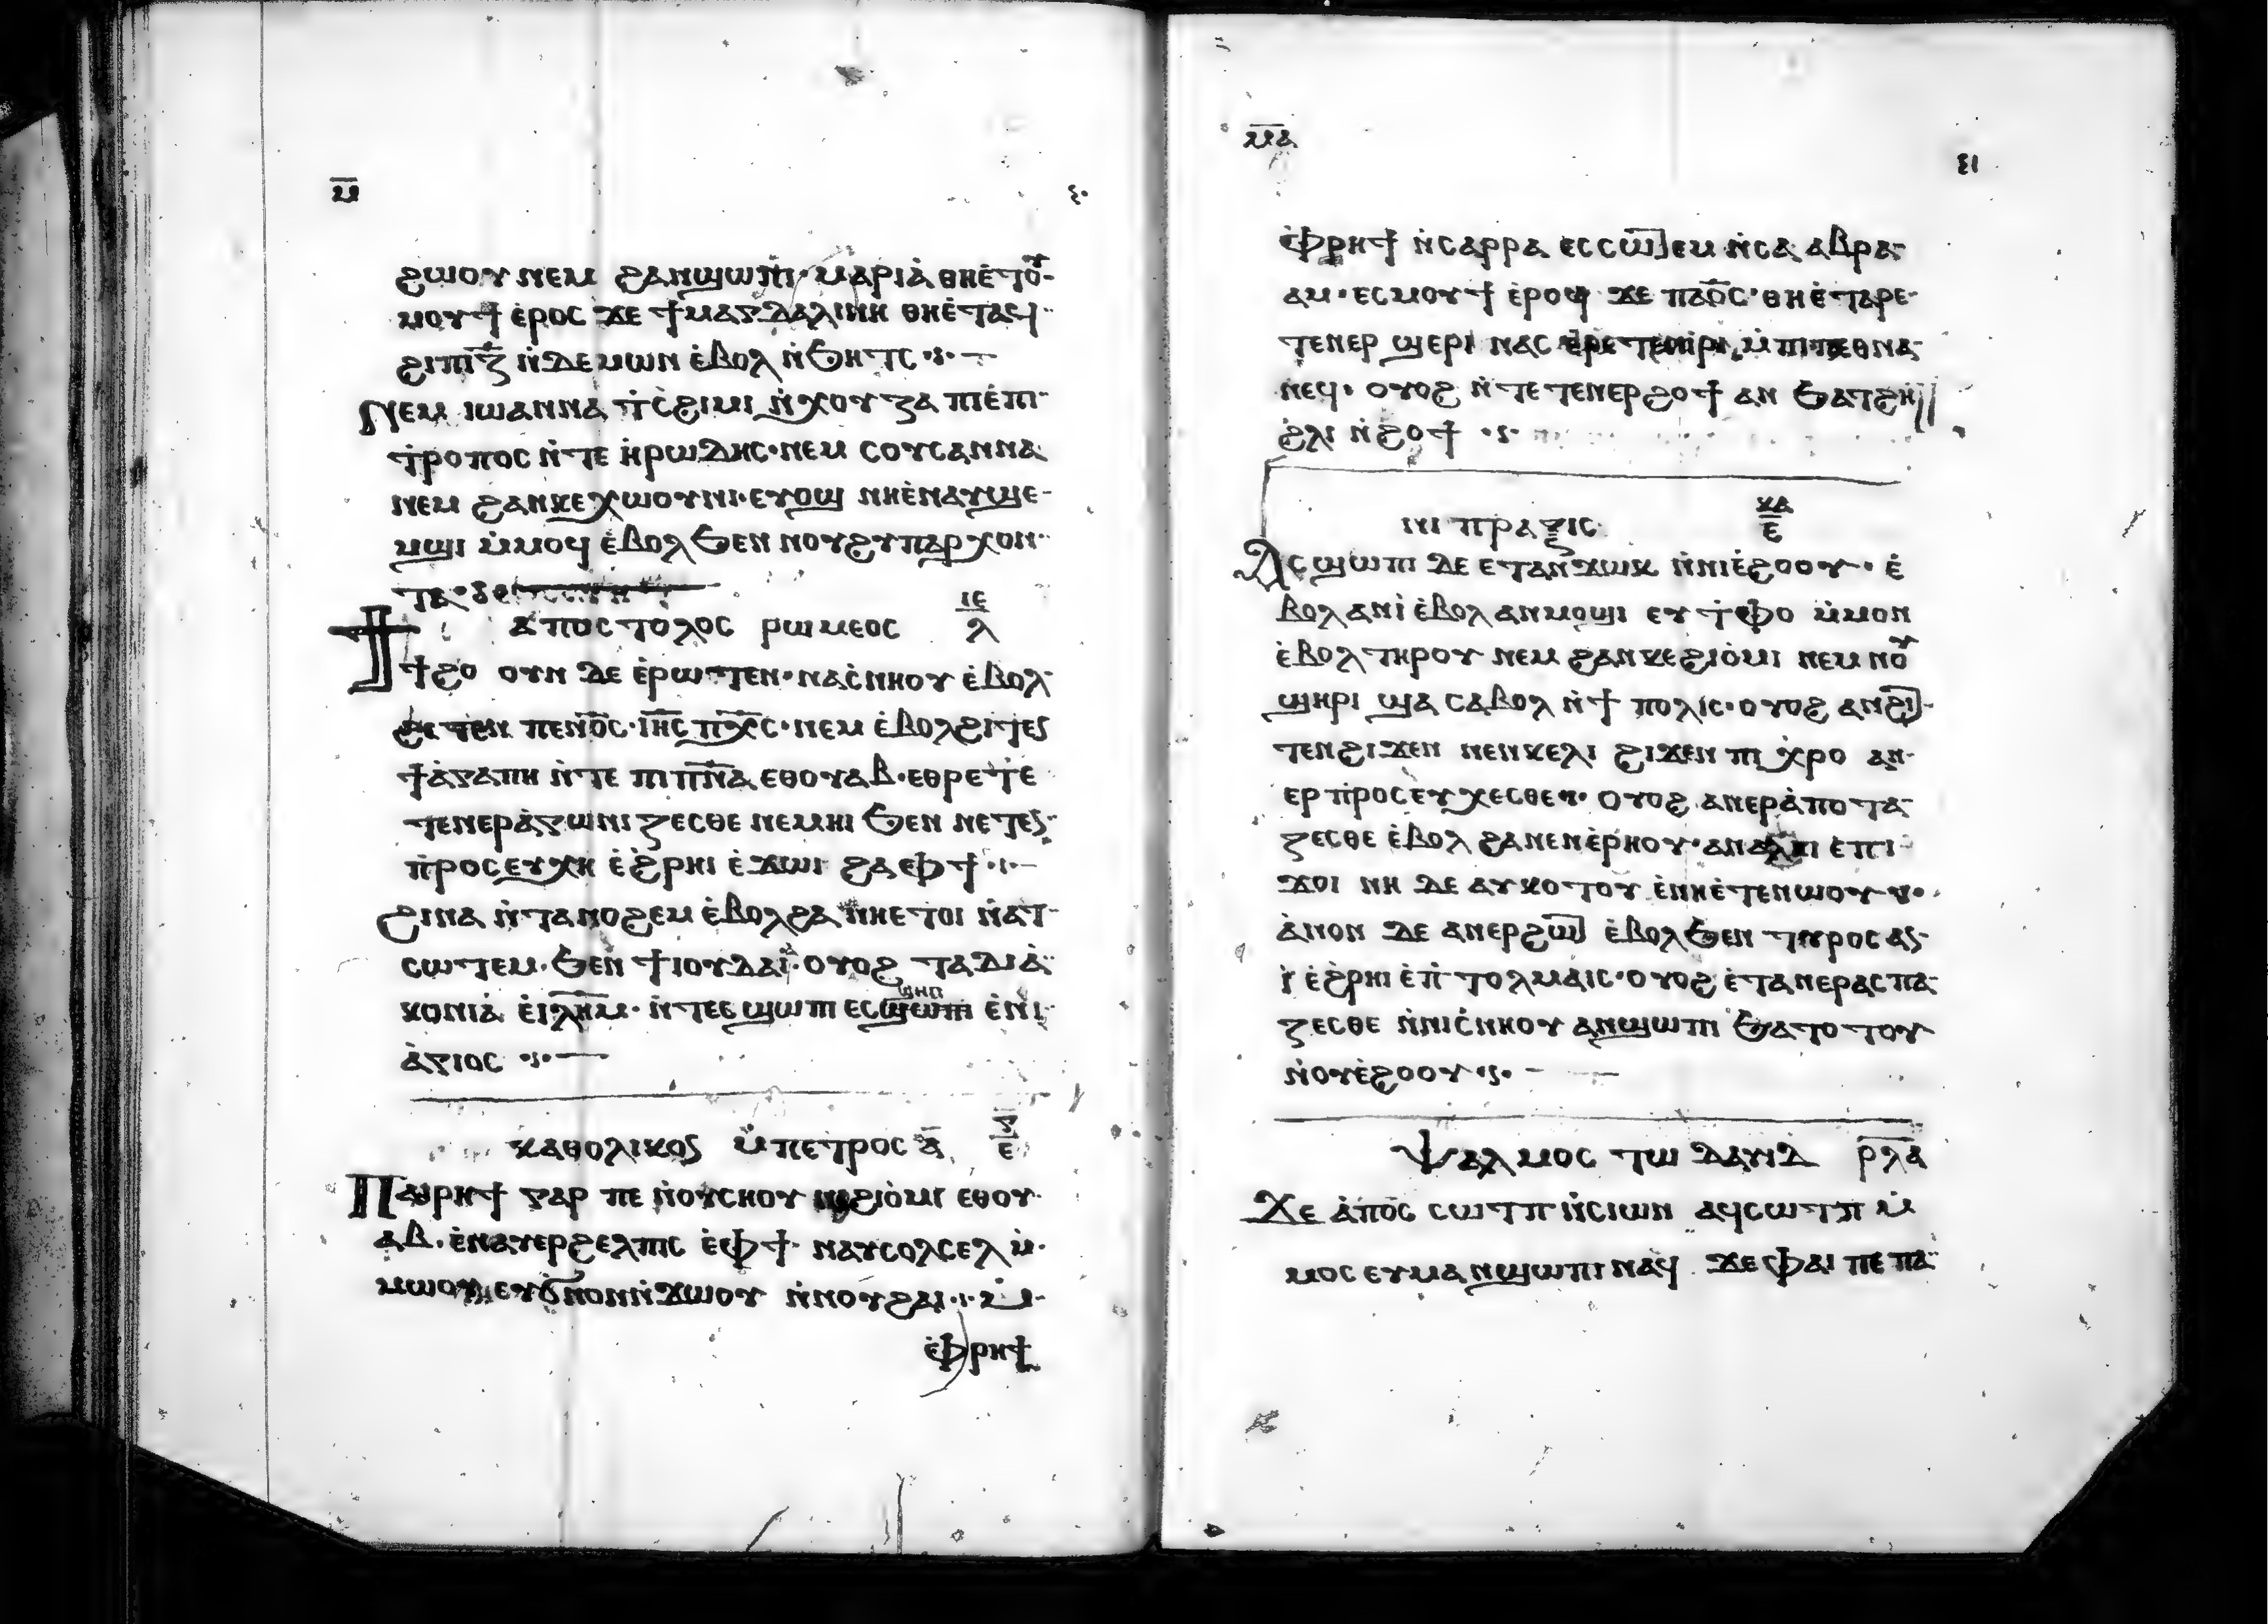 ⲙ̅
ϩⲱⲟⲩ ⲛⲉⲙ ϩⲁⲛϣⲱⲛⲓ· ⲙⲁⲣⲓⲁ̀ ⲑⲏⲉ̀ⲧⲟⲩ
ⲙⲟⲩϯ ⲉ̀ⲣⲟⲥ ϫⲉ ϯⲙⲁⲅⲇⲁⲗⲓⲛⲏ ⲑⲏⲉ̀ⲧⲁϥ
ϩⲓⲡⲓⲍ̅ ⲛ̀ⲇⲉⲙⲱⲛ ⲉ̀ⲃⲟⲗ ⲛ̀ϧⲏⲧⲥ
ⲛⲉⲙ ⲓⲱⲁⲛⲛⲁ ⲧ̀ⲥ̀ϩⲓⲙⲓ ⲛ̀ⲭⲟⲩⲍⲁ ⲡⲓⲉ̀ⲡⲓ
ⲧⲣⲟⲡⲟⲥ ⲛ̀ⲧⲉ ⲏ̀ⲣⲱⲇⲏⲥ· ⲛⲉⲙ ⲥⲟⲩⲥⲁⲛⲛⲁ
ⲛⲉⲙ ϩⲁⲛⲕⲉⲭⲱⲟⲩⲛⲓ· ⲉⲩⲟϣ ⲛⲏⲉ̀ⲛⲁⲩϣⲉ
ⲙϣⲓ ⲙ̀ⲙⲟϥ ⲉ̀ⲃⲟⲗϧⲉⲛ ⲛⲟⲩϩⲩⲡⲁⲣⲭⲟⲛ
ⲧⲁ·
ⲁ̀ⲡⲟⲥⲧⲟⲗⲟⲥ ⲣⲱⲙⲉⲟⲥ ⲓⲉ ⲗ
ϯϩⲟ ⲟⲩⲛ ⲇⲉ ⲉ̀ⲣⲱⲧⲉⲛ· ⲛⲁⲥ̀ⲛⲏⲟⲩ ⲉ̀ⲃⲟⲗ
ϩⲓⲧⲉⲛ ⲡⲉⲛⲟ̅ⲥ̅· ⲓⲏ̅ⲥ̅ ⲡⲭ̅ⲥ̅· ⲛⲉⲙ ⲉ̀ⲃⲟⲗϩⲓⲧⲉⲛ
ϯⲁ̀ⲅⲁⲡⲏ ⲛ̀ⲧⲉ ⲡⲓⲡⲛ̅ⲁ̅ ⲉⲑⲟⲩⲁⲃ· ⲉⲑⲣⲉⲧⲉ
ⲧⲉⲛⲉⲣⲁ̀ⲅⲱⲛⲓⲍⲉⲥⲑⲉ ⲛⲉⲙⲏⲓ ϧⲉⲛ ⲛⲉⲧⲉⲛ
ⲡ̀ⲣⲟⲥⲉⲩⲭⲏ ⲉ̀ϩ̀ⲣⲏⲓ ⲉ̀ϫⲱⲓ ϩⲁ ⲉⲫϯ
ϩⲓⲛⲁ ⲛ̀ⲧⲁⲛⲟϩⲉⲙ ⲉ̀ⲃⲟⲗϩⲁ ⲛⲏⲉⲧⲟⲓ ⲛ̀ⲁⲧ
ⲥⲱⲧⲉⲙ· ϧⲉⲛ ϯⲓⲟⲩⲇⲁⲓ̀· ⲟⲩⲟϩ ⲧⲁⲇⲓⲁ̀
ⲕⲟⲛⲓⲁ̀ ⲉ̀ⲓ̅ⲗ̅ⲏ̅ⲙ̅· ⲛ̀ⲧⲉⲥϣⲱⲡⲓ ⲉⲥϣⲏⲡ ⲉ̀ⲛⲓ
ⲁ̀ⲅⲓⲟⲥ
ⲕⲁⲑⲟⲗⲓⲕⲟⲥ ⲙ̀ⲡⲉⲧⲣⲟⲥ ⲁ̅ ⲉ̅
ⲡⲁⲓⲣⲏϯ ⲅⲁⲣ ⲡⲉ ⲛ̀ⲟⲩⲥⲏⲟⲩ ⲛⲓϩⲓⲟ̀ⲙⲓ ⲉⲑⲟⲩ
ⲁⲃ· ⲉ̀ⲛⲁⲩⲉⲣϩⲉⲗⲡⲓⲥ ⲉ̀ⲫϯ· ⲛⲁⲩⲥⲟⲗⲥⲉⲗ ⲙ̀
ⲙⲱⲟⲩ ⲉⲩϭⲛⲟⲛ ⲛ̀ϫⲱⲟⲩ ⲛ̀ⲛⲟⲩϩⲁⲓ· ⲙ̀
ⲉ̀ⲫⲣⲏϯ
ⲙ̅ⲁ̅
٤١
ⲉ̀ⲫⲣⲏϯ ⲛ̀ⲥⲁⲣⲣⲁ ⲉⲥⲥⲱⲧⲉⲙ ⲛ̀ⲥⲁ ⲁⲃⲣⲁ
ⲁⲙ· ⲉⲥⲙⲟⲩϯ ⲉ̀ⲣⲟϥ ϫⲉ ⲡⲁⲟ̅ⲥ̅· ⲑⲏⲉ̀ⲧⲁⲣⲉ
ⲧⲉⲛⲉⲣ ϣⲉⲣⲓ ⲛⲁⲥ ⲉⲣⲉⲧⲉⲛⲓⲣⲓ ⲙ̀ⲡⲓⲡⲉⲑⲛⲁ
ⲛⲉϥ· ⲟⲩⲟϩ ⲛ̀ⲧⲉⲧⲉⲛⲉⲣϩⲟϯ ⲁⲛ ϧⲁⲧϩⲏ
ϩ̀ⲗⲓ ⲛ̀ϩⲟϯ
ⲛⲓ ⲡⲣⲁⲝⲓⲥ ⲕⲁ ⲉ̅
ⲁⲥϣⲱⲡⲓ ⲇⲉ ⲉⲧⲁⲛϫⲱⲕ ⲛ̀ⲛⲓⲉ̀ϩⲟⲟⲩ· ⲉ̀
ⲃⲟⲗ ⲁⲛⲓ̀ ⲉ̀ⲃⲟⲗ ⲁⲛⲙⲟϣⲓ ⲉⲩⲧ̀ⲫⲟ ⲙ̀ⲙⲟⲛ
ⲉ̀ⲃⲟⲗ ⲧⲏⲣⲟⲩ ⲛⲉⲙ ϩⲁⲛⲕⲉϩⲓⲟ̀ⲙⲓ ⲛⲉⲙ ⲛⲟⲩ
ϣⲏⲣⲓ ϣⲁ ⲥⲁⲃⲟⲗ ⲛ̀ϯ ⲡⲟⲗⲓⲥ· ⲟⲩⲟϩ ⲁⲛϩⲓ
ⲧⲉⲛ ϩⲓϫⲉⲛ ⲛⲉⲛⲕⲉⲗⲓ ϩⲓϫⲉⲛ ⲡⲓ ⲭ̀ⲣⲟ ⲁⲛ
ⲉⲣ ⲡ̀ⲣⲟⲥⲉⲩⲭⲉⲥⲑⲉ· ⲟⲩⲟϩ ⲁⲛⲉⲣⲁ̀ⲡⲟⲧⲁ
ⲍⲉⲥⲑⲉ ⲉ̀ⲃⲟⲗ ϩⲁⲛⲉⲛⲉ̀ⲣⲏⲟⲩ· ⲁⲛⲁⲗⲏⲓ ⲉ̀ⲡⲓ
ϫⲟⲓ ⲛⲏ ⲇⲉ ⲁⲩⲕⲟⲧⲟⲩ ⲉ̀ⲛⲏⲉ̀ⲧⲉⲛⲱⲟⲩ
ⲁ̀ⲛⲟⲛ ⲇⲉ ⲁⲛⲉⲣϩⲱⲧ ⲉ̀ⲃⲟⲗϧⲉⲛ ⲧⲩⲣⲟⲥ ⲁⲛ
ⲓ̀ ⲉ̀ϩ̀ⲣⲏⲓ ⲉ̀ⲡ̀ⲧⲟⲗⲙⲁⲓⲥ· ⲟⲩⲟϩ ⲉ̀ⲧⲁⲛⲉⲣⲁⲥⲡⲁ
ⲍⲉⲥⲑⲉ ⲛ̀ⲛⲓⲥ̀ⲛⲏⲟⲩ ⲁⲛϣⲱⲡⲓ ϧⲁⲧⲟⲧⲟⲩ
ⲛ̀ⲟⲩⲉ̀ϩⲟⲟⲩ
ⲯⲁⲗⲙⲟⲥ ⲧⲱ ⲇⲁⲩⲓⲇ ⲣ̅ⲗ̅ⲁ̅
ϫⲉ ⲁ̀ⲡⲟ̅ⲥ̅ ⲥⲱⲧⲡ ⲛ̀ⲥⲓⲱⲛ ⲁϥⲥⲱⲧⲡ ⲙ̀
ⲙⲟⲥ ⲉⲩⲙⲁⲛϣⲱⲡⲓ ⲛⲁϥ ϫⲉ ⲫⲁⲓ ⲡⲉ ⲡⲁ